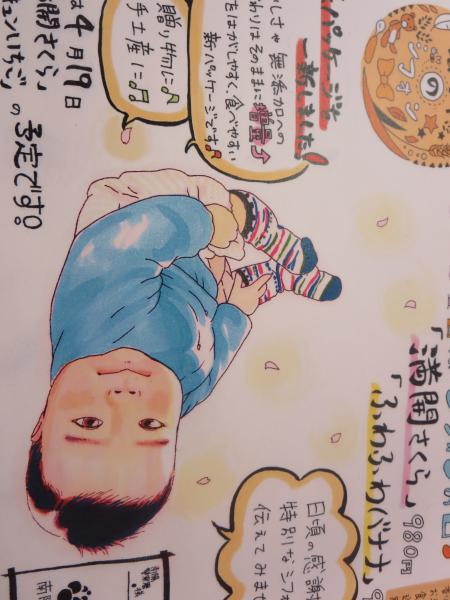 の
シフォン
パッケージを
一新しました!
しさや無添加の
わりはそのままに増量
をはがしやすく、食べやすい
新パッケージです♪
贈り物に♪
手土産に♪
は4月19日
開さくら
ュンいちご
の予定です。
「満開さくら」980円
「ふわふわバナナ」
日頃の感謝
特別なシフォ
伝えてみませ